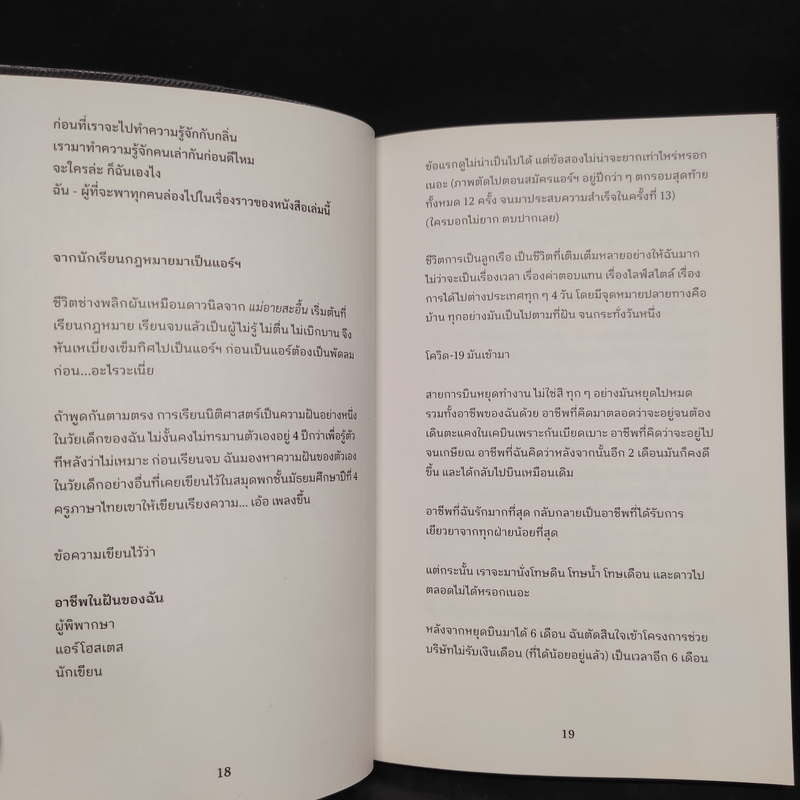 ก่อนที่เราจะไปทำความรู้จักกับกลิ่น
เรามาทำความรู้จักคนเล่ากันก่อนดีไหม
จะใครล่ะ ก็ฉันเองไง
ฉัน - ผู้ที่จะพาทุกคนล่องไปในเรื่องราวของหนังสือเล่มนี้
จากนักเรียนกฎหมายมาเป็นแอร์ฯ
ชีวิตช่างพลิกผันเหมือนดาวนิลจาก แม่อายสะอื้น เริ่มต้นที่
เรียนกฎหมาย เรียนจบแล้วเป็นผู้ไม่รู้ ไม่ตื่น ไม่เบิกบาน จึง
หันเหเบี่ยงเข็มทิศไปเป็นแอร์ฯ ก่อนเป็นแอร์ต้องเป็นพัดลม
ก่อน...อะไรวะเนี่ย
ถ้าพูดกันตามตรง การเรียนนิติศาสตร์เป็นความฝันอย่างหนึ่ง
ในวัยเด็กของฉัน ไม่งั้นคงไม่ทรมานตัวเองอยู่ 4 ปีกว่าเพื่อรู้ตัว
ทีหลังว่าไม่เหมาะ ก่อนเรียนจบ ฉันมองหาความฝันของตัวเอง
ในวัยเด็กอย่างอื่นที่เคยเขียนไว้ในสมุดพกชั้นมัธยมศึกษาปีที่ 4
ครูภาษาไทยเขาให้เขียนเรียงความ... เอ้อ เพลงขึ้น
ข้อความเขียนไว้ว่า
อาชีพในฝันของฉัน
ผู้พิพากษา
แอร์โฮสเตส
นักเขียน
18
ข้อแรกดูไม่น่าเป็นไปได้ แต่ข้อสองไม่น่าจะยากเท่าไหร่หรอก
เนอะ (ภาพตัดไปตอนสมัครแอร์ฯ อยู่ปีกว่า ๆ ตกรอบสุดท้าย
ทั้งหมด 12 ครั้ง จนมาประสบความสำเร็จในครั้งที่ 13)
(ใครบอกไม่ยาก ตบปากเลย)
ชีวิตการเป็นลูกเรือ เป็นชีวิตที่เติมเต็มหลายอย่างให้ฉันมาก
ไม่ว่าจะเป็นเรื่องเวลา เรื่องค่าตอบแทน เรื่องไลฟ์สไตล์ เรื่อง
การได้ไปต่างประเทศทุก ๆ 4 วัน โดยมีจุดหมายปลายทางคือ
บ้าน ทุกอย่างมันเป็นไปตามที่ฝัน จนกระทั่งวันหนึ่ง
โควิด-19 มันเข้ามา
สายการบินหยุดทำงาน ไม่ใช่สิ ทุก ๆ อย่างมันหยุดไปหมด
รวมทั้งอาชีพของฉันด้วย อาชีพที่คิดมาตลอดว่าจะอยู่จนต้อง
เดินตะแคงในเคบินเพราะก้นเบียดเบาะ อาชีพที่คิดว่าจะอยู่ไป
จนเกษียณ อาชีพที่ฉันคิดว่าหลังจากนั้นอีก 2 เดือนมันก็คงดี
ขึ้น และได้กลับไปบินเหมือนเดิม
อาชีพที่ฉันรักมากที่สุด กลับกลายเป็นอาชีพที่ได้รับการ
เยียวยาจากทุกฝ่ายน้อยที่สุด
แต่กระนั้น เราจะมานั่งโทษดิน โทษน้ำ โทษเดือน และดาวไป
ตลอดไม่ได้หรอกเนอะ
หลังจากหยุดบินมาได้ 6 เดือน ฉันตัดสินใจเข้าโครงการช่วย
บริษัทไม่รับเงินเดือน (ที่ได้น้อยอยู่แล้ว) เป็นเวลาอีก 6 เดือน
19